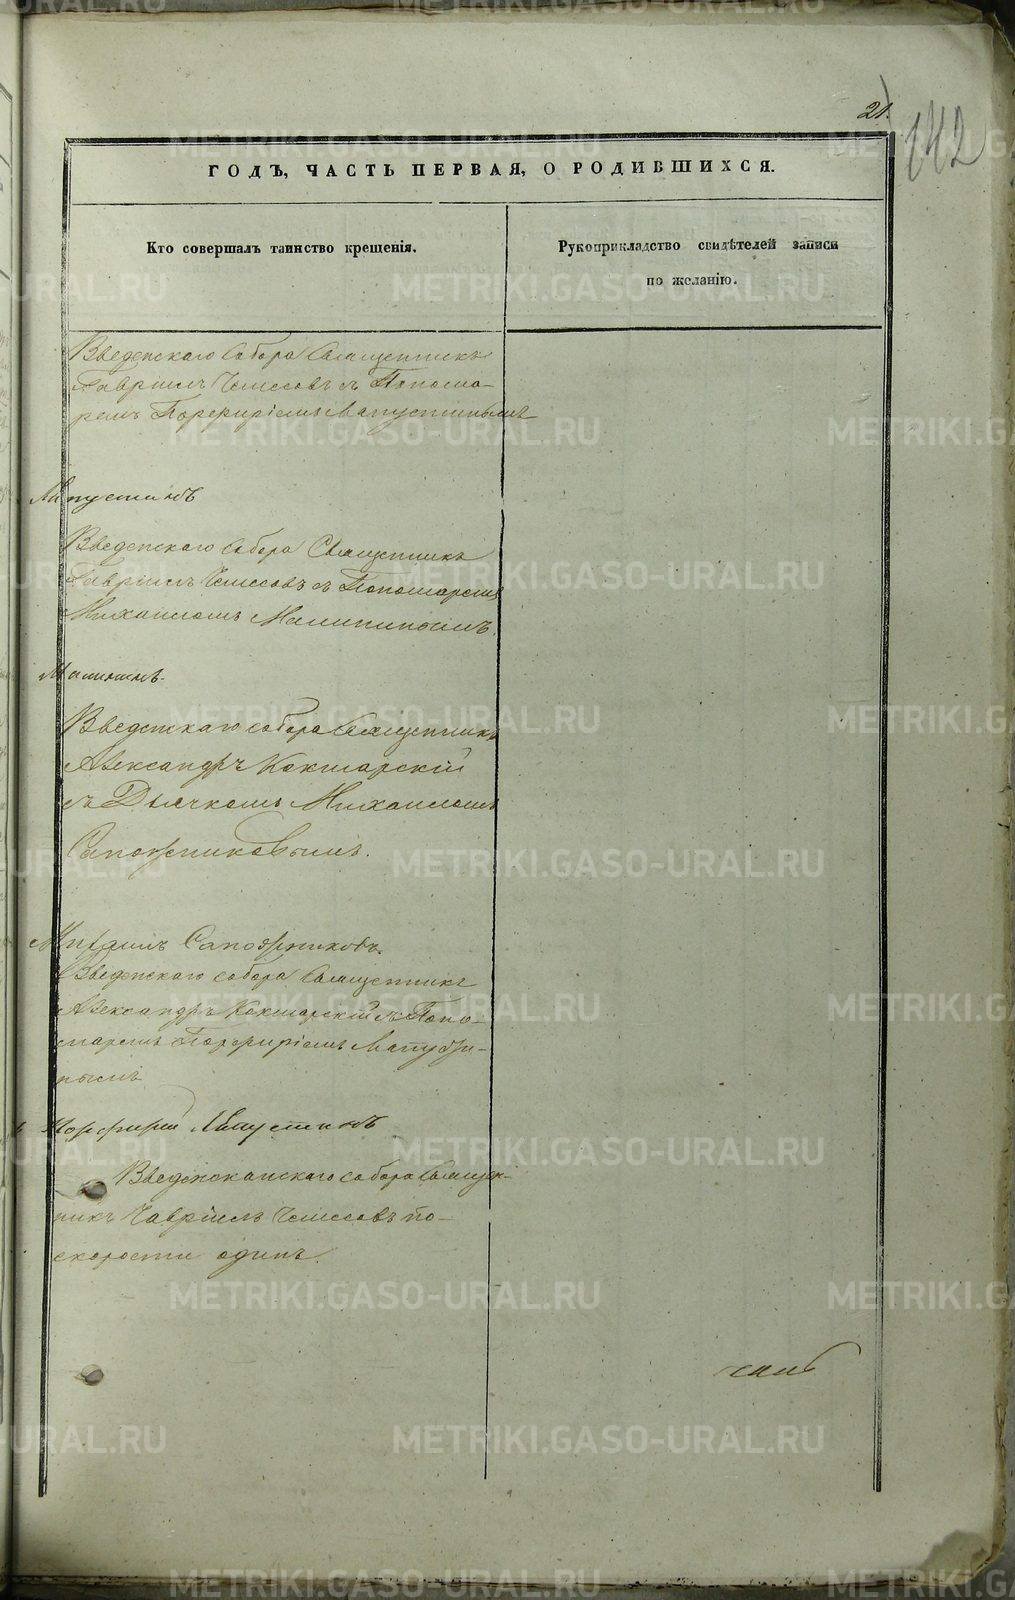 21.
142
ГОДЪ, ЧАСТЬ ПЕРВАЯ, О РОДИВШИХСЯ.
Кто совершалъ таинство крещенія.
Рукоприкладство свидѣтелей записи
по желанію.
Введенскаго Собора Священникъ
Гавріилъ Чемесовъ съ Понома-
ремъ Порфиріемъ Лапустинымъ
Лапустинъ
Введенскаго Собора Священникъ
Гавріилъ Чемесовъ съ Пономаремъ
Михаиломъ Малининымъ.
Малининъ.
Введенскаго собора Священникъ
Александръ Кокшарскій
съ Дьячкомъ Михаиломъ
Сапожниковымъ.
Михаилъ Сапожниковъ.
Введенскаго собора Священникъ
Александръ Кокшарскій съ Поно-
маремъ Порфиріемъ
нымъ
Порфирій Лапустинъ
собора Священ-
никъ Гавріилъ Чемесовъ по-
скорости одинъ.
METRIKI.GASO-URAL.RU